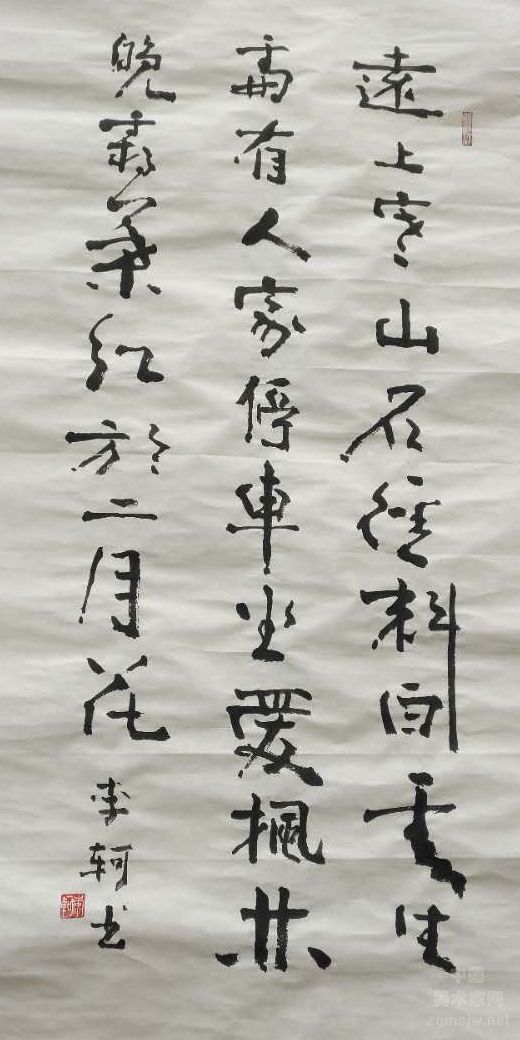 遠上寒山石徑斜白雲生
處有人家停車坐愛楓林
晚霜葉紅於二月花
李軻书
中国
美术家网
zgmsjw.net